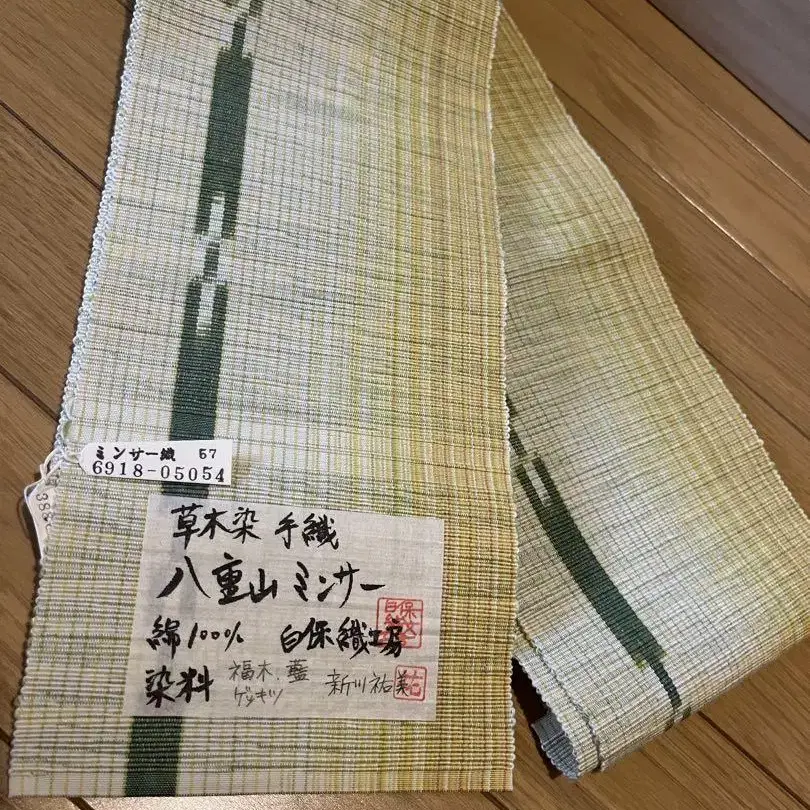 ミンサー織 57
6918-05054
草木染 手織
八重山 ミンサー
綿100% 白保織工房
染料 福木、藍 新川祐美
ゲッキツ